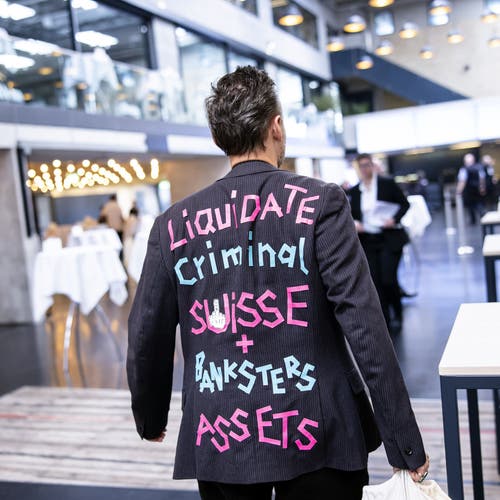 LiquiDATE
Criminal
SUiSSE
+
BANKSTERS
ASSETS